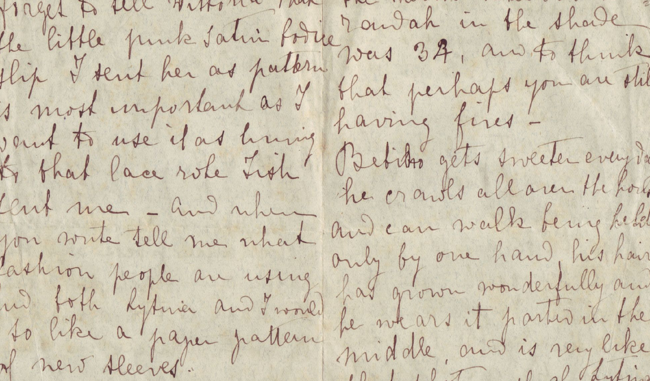 forget to tell Victoria that
the little pink satin bodice
slip I sent her as pattern
is most important as I
want to use it as lining
to that lace robe Tish
sent me - and when
you write tell me what
fashion people are using
and both and I would
so like a paper pattern
of new sleeves.
in the shade
was 32, and to think
that perhaps you are still
having fires -
Bebito gets sweeter every day
he crawls all over the house
and can walk being held
only by one hand, his hair
has grown wonderfully and
he wears it parted in the
middle, and is very like